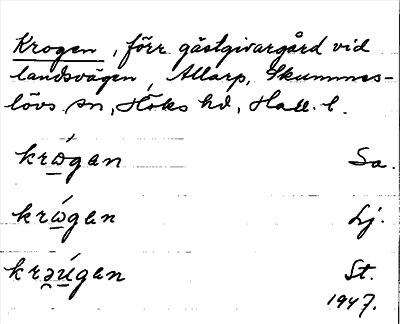 Krogen, förr gästgivargård vid
landsvägen, Allarp, Skummes-
lövs sn, Höks hd, Hall. l.
krώgan Sa.
krώgen Lj.
krəúgen St.
1947.